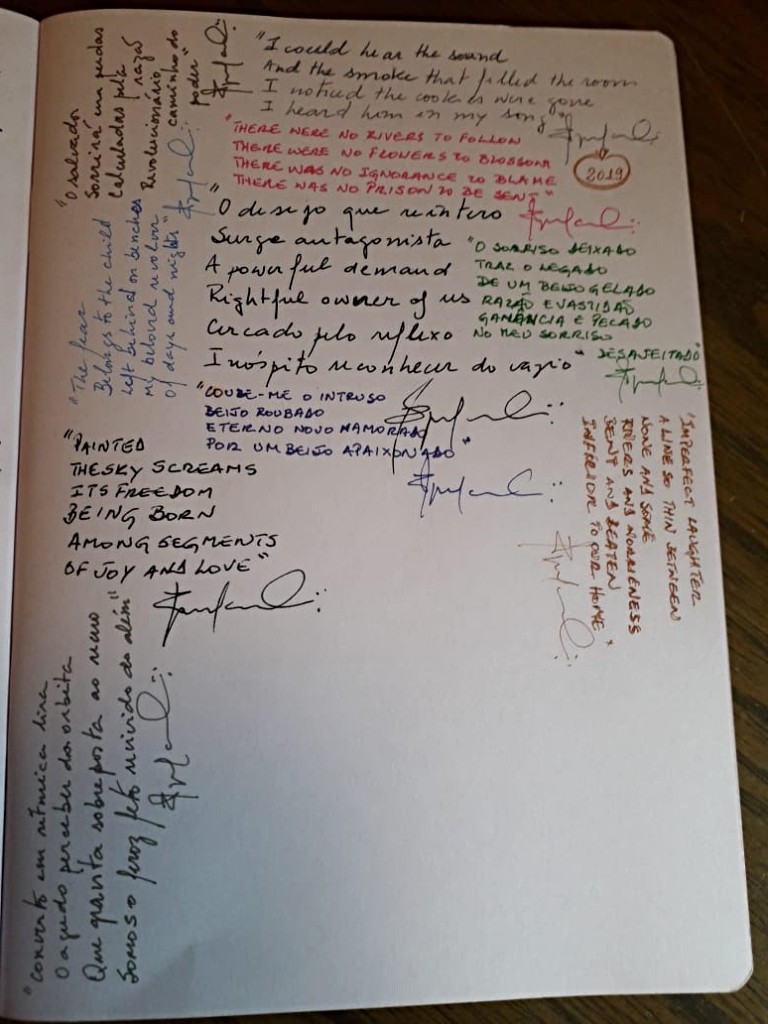 "O salvador
Sorrirá em perdas
Calculadas pela
razão
Revolucionário
caminho do
poder"
"I could hear the sound
And the smoke that filled the room
I noticed the cookies were gone
I heard him in my song"
2019
"THERE WERE NO RIVERS TO FOLLOW
THERE WERE NO FLOWERS TO BLOSSOM
THERE WAS NO IGNORANCE TO BLAME
THERE WAS NO PRISON TO BE SENT"
"The fear
Belongs to the child
Left behind on benches
My beloved revolver
Of days and nights"
"O desejo que reintero
Surge antagonista
A powerful demand
Rightful owner of us
Cercado pelo reflexo
Inóspito reconhecer do vazio"
"O SORRISO DEIXADO
TRAZ O LEGADO
DE UM BEIJO GELADO
RAZÃO E VASTIDÃO
GANÂNCIA E PECADO
NO MEU SORRISO
DESAJEITADO"
"COUBE-ME O INTRUSO
BEIJO ROUBADO
ETERNO NOVO NAMORADO
POR UM BEIJO APAIXONADO"
"PAINTED
THE SKY SCREAMS
ITS FREEDOM
BEING BORN
AMONG SEGMENTS
OF JOY AND LOVE"
"IMPERFECT LAUGHTER
A LINE SO THIN BETWEEN
NONE AND SOME
RIVERS AND
SENT AND BEATEN
INFERIOR TO OUR HOME"
"Converto em rítmica lira
O agudo perceber da órbita
Que gravita sobreposta ao
Somos o feroz feto revivido do além"